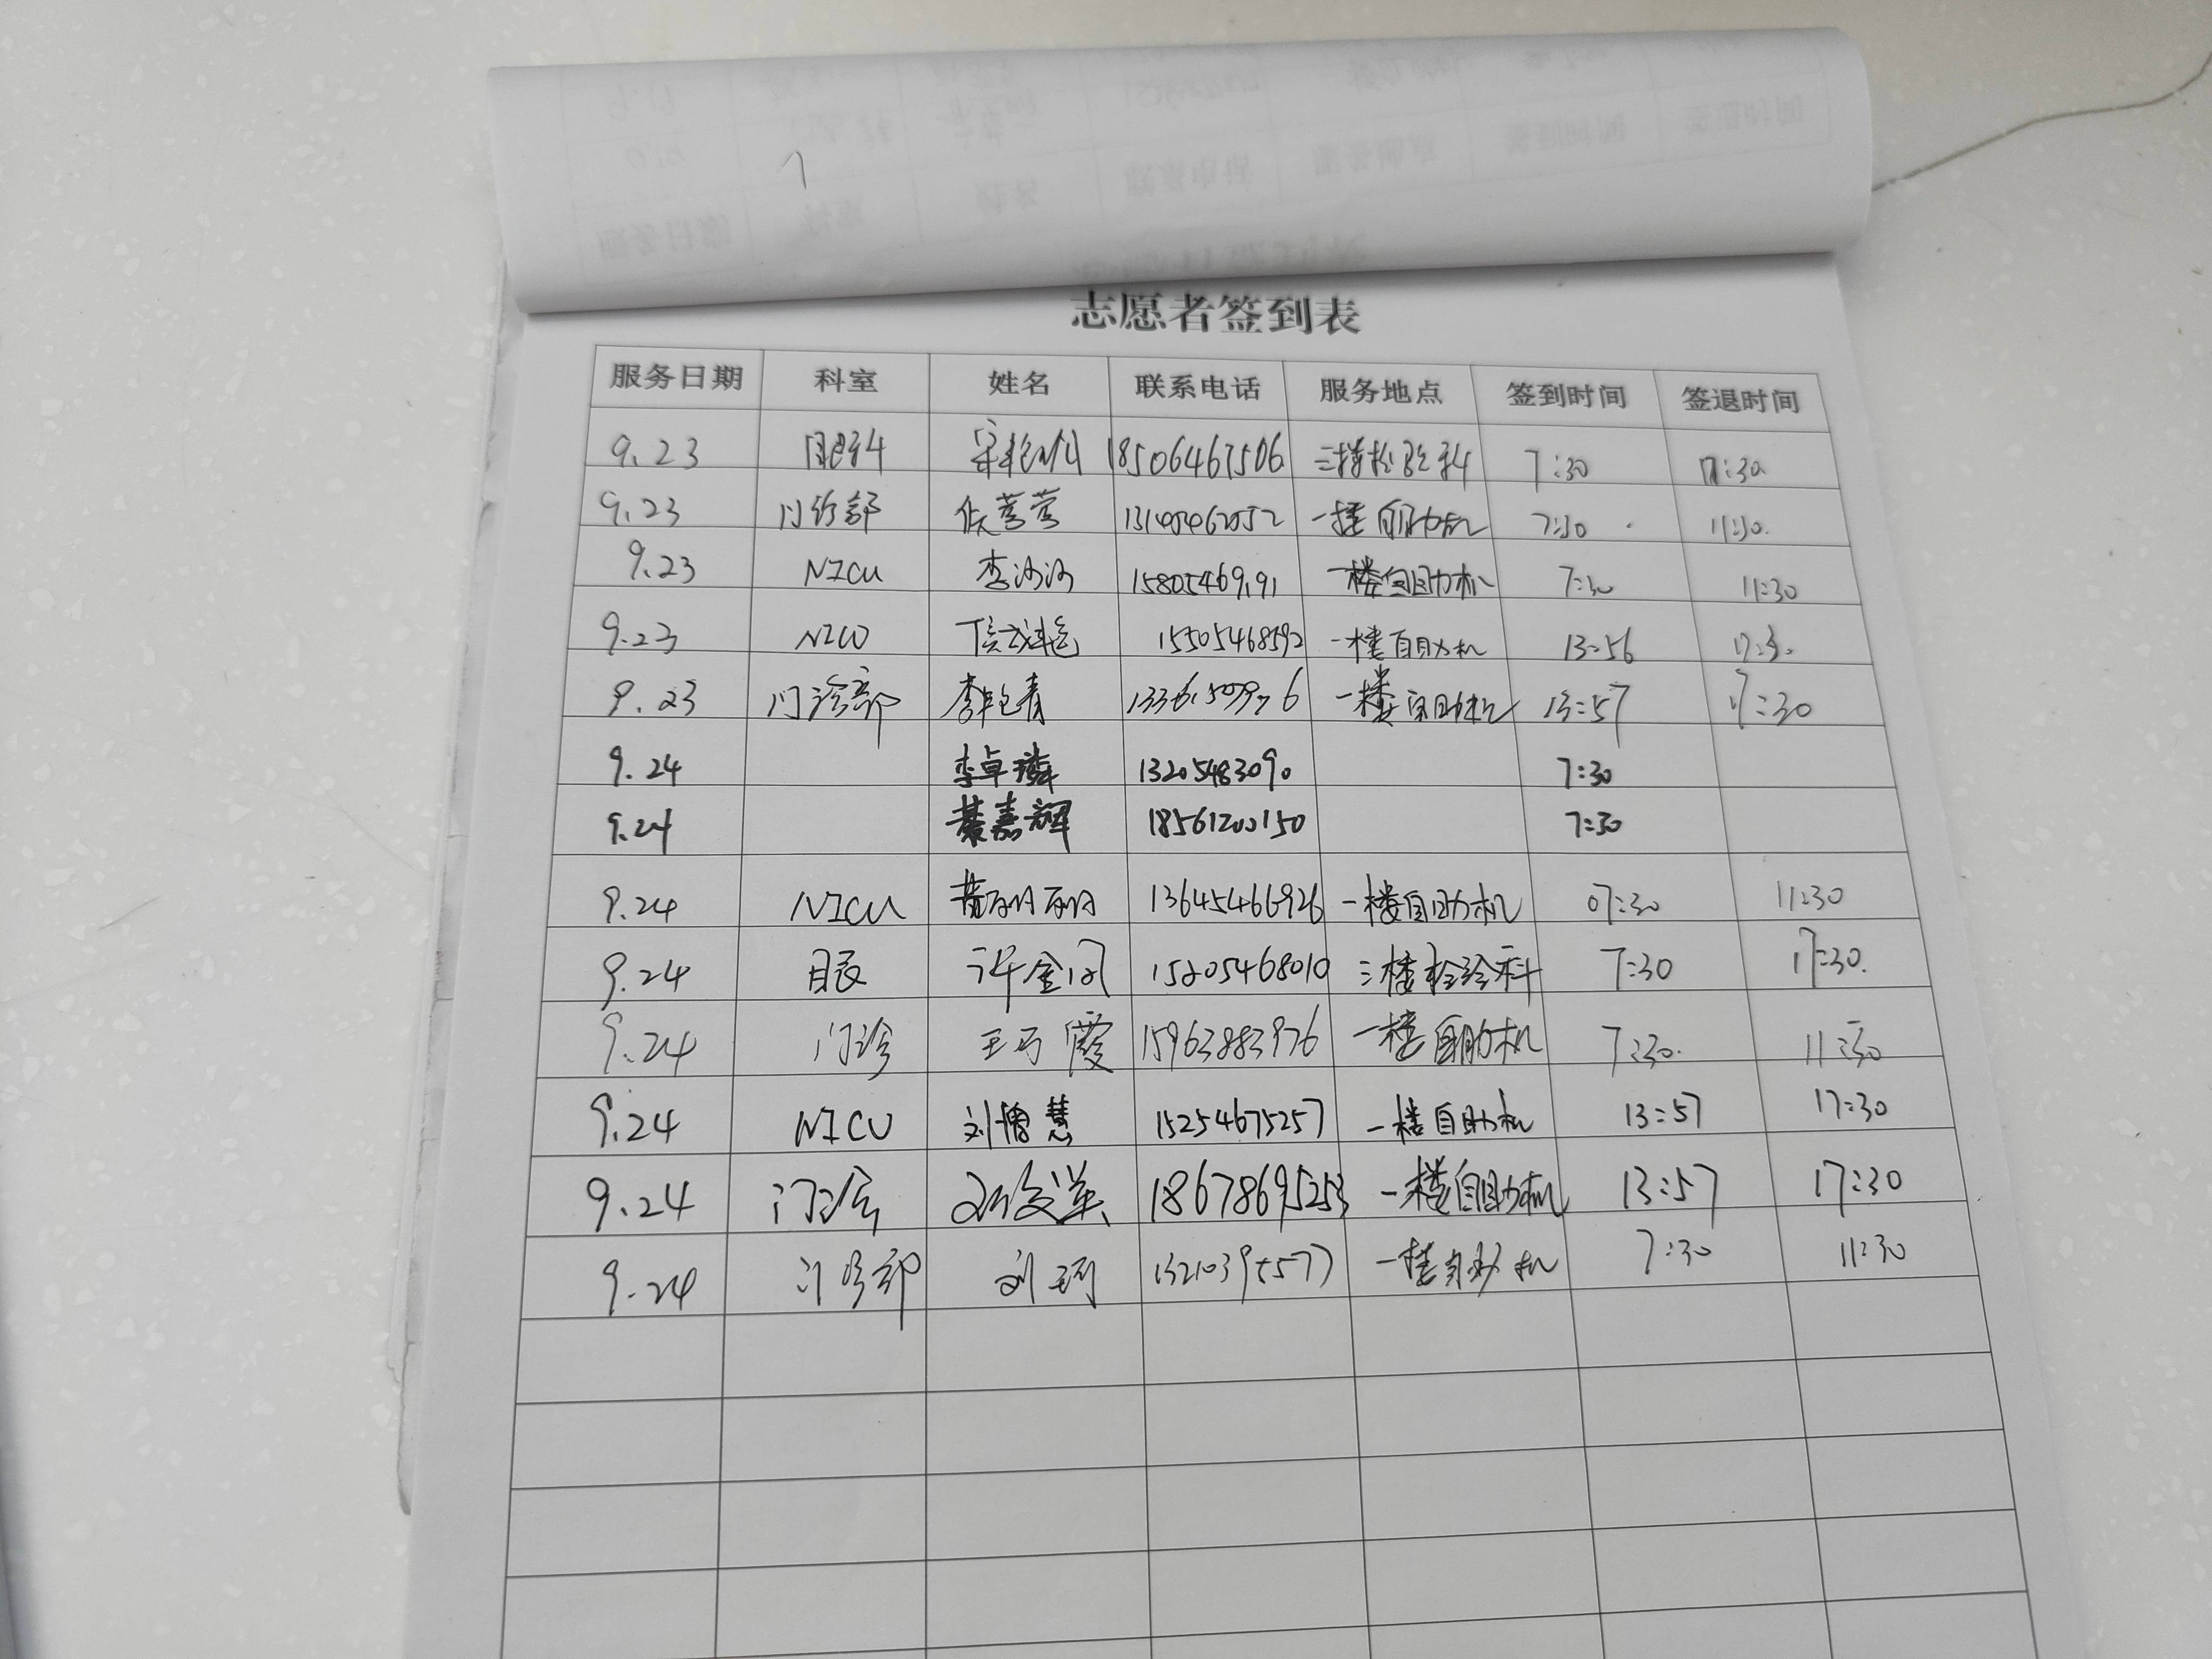 志愿者签到表
服务日期 科室 姓名 联系电话 服务地点 签到时间 签退时间
9.23 眼科 18506467506 三楼检验科 7:30 17:30
9.23 门诊部 侯莺莺 一楼自助机 7:30 11:30.
9.23 NICU 李沙沙 一楼自助机 7:30 11:30
9.23 NICU 15505468592 一楼自助机 13:56
9.23 门诊部 李艳青 一楼自助机 13:57 17:30
9.24 李卓璘 13205483090 7:30
9.24 綦嘉辉 18561200150 7:30
9.24 NICU 13645466926 一楼自助机 07:30 11:30
9.24 眼 15205468010 三楼检验科 7:30 17:30.
9.24 门诊 15963883976 一楼自助机 7:30. 11:30
9.24 NICU 刘增慧 15254675257 一楼自助机 13:57 17:30
9.24 门诊 18678695253 一楼自助机 13:57 17:30
9.24 门诊部 刘珂 13210395577 一楼自助机 7:30 11:30